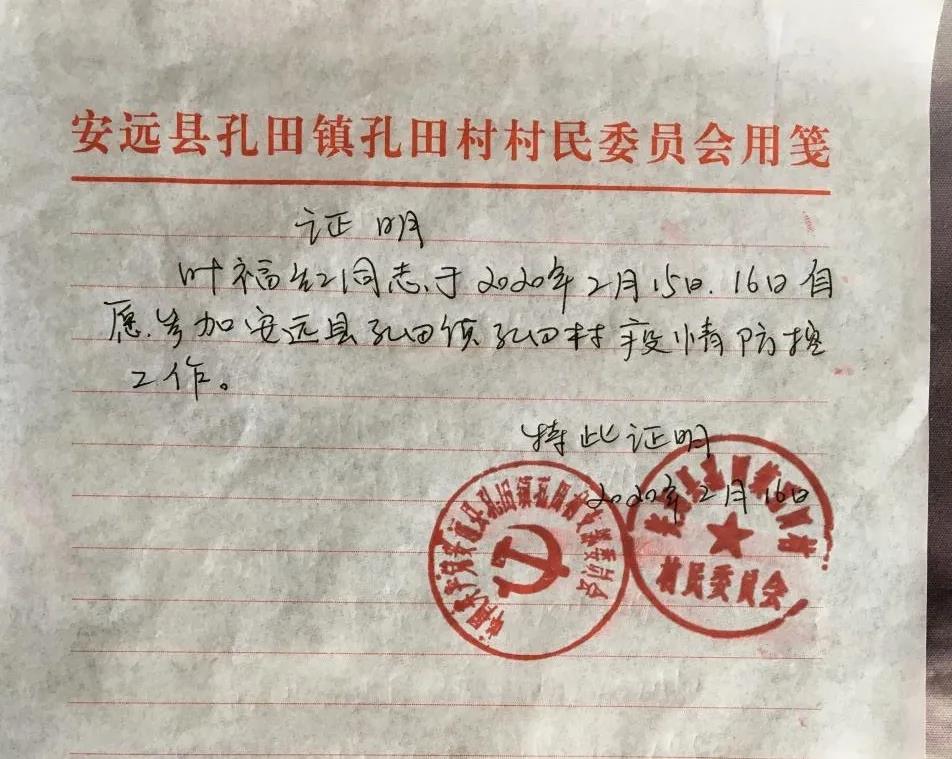 安远县孔田镇孔田村村民委员会用笺
证明
叶福红同志于2020年2月15日.16日自
愿参加安远县孔田镇孔田村疫情防控
工作。
特此证明
2020年2月16日
中国共产党安远县孔田镇孔田村支部委员会
安远县孔田镇孔田村
村民委员会